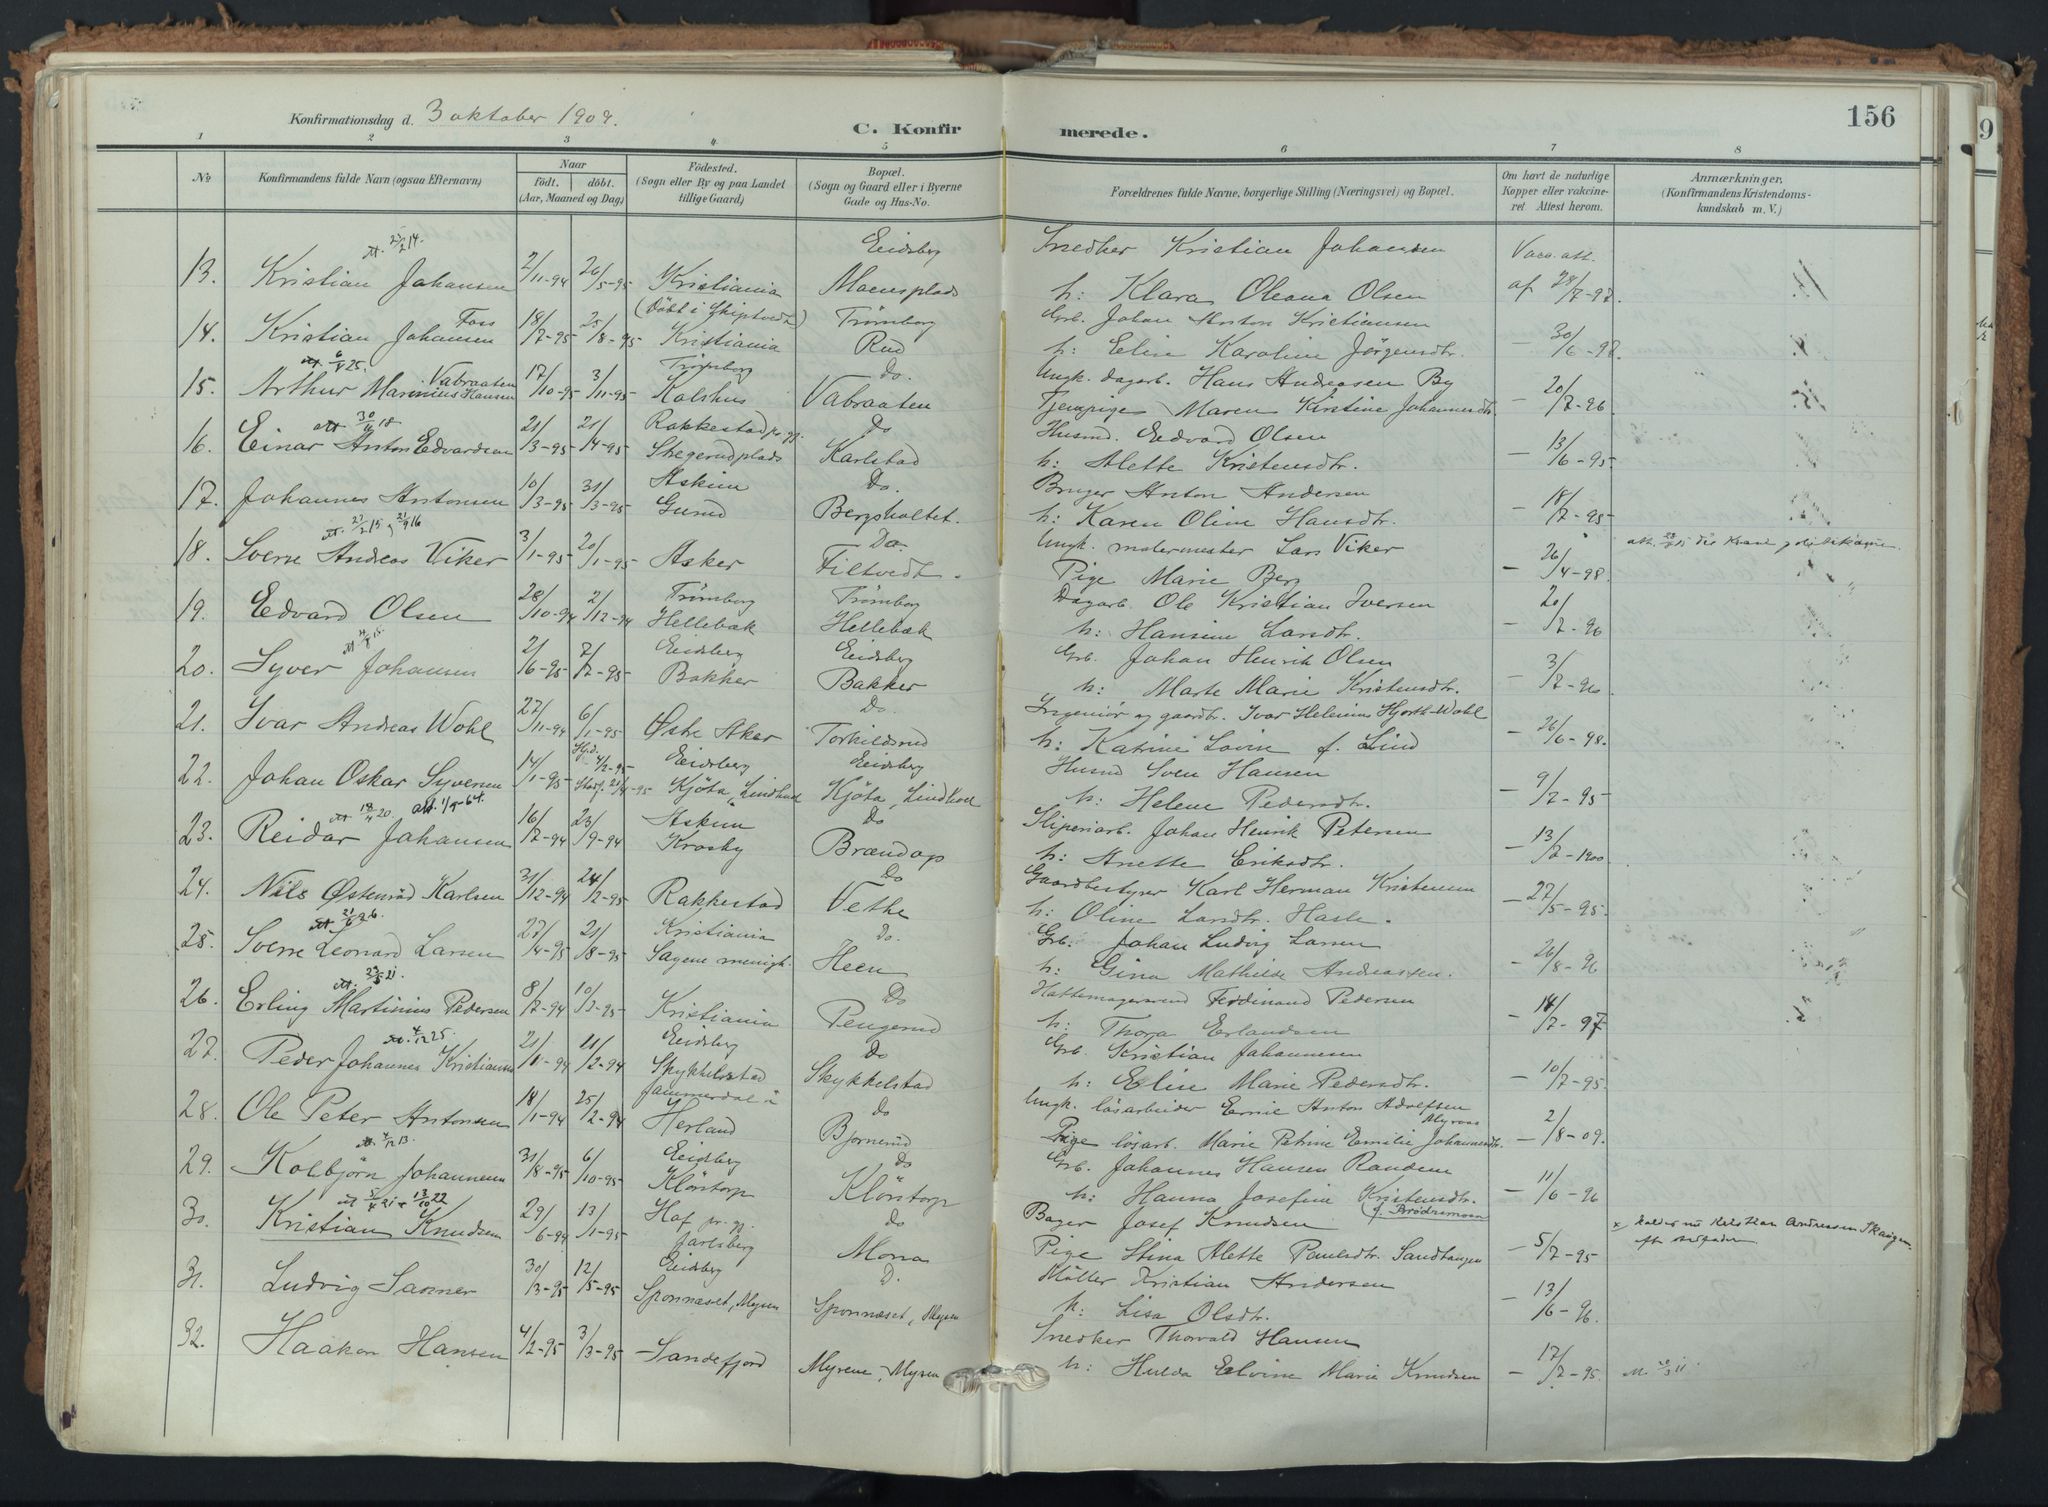 156
Konfirmationsdag d. 3 oktober 1909.
C. Konfirmerede.
1 2 3 4 5 6 7 8
No.
Konfirmandens fulde Navn (ogsaa Efternavn)
Naar
födt. döbt.
(Aar, Maaned og Dag)
Födested.
(Sogn eller By og paa Landet
tillige Gaard)
Bopæl.
(Sogn og Gaard eller i Byerne
Gade og Hus-No.
Forældrenes fulde Navne, borgerlige Stilling (Næringsvei) og Bopæl.
Om havt de naturlige
Kopper eller vakcine-
ret Attest herom.
Anmærkninger.
(Konfirmandens Kristendoms-
kundskab m. V.)
att. 23/2 14.
13. Kristian Johansen 2/11-94 26/5-95 Kristiania Eidsberg Maensplads
Snedker Kristian Johansen
h: Klara Oleana Olsen
Vacc. att. af 28/7-97.
14. Kristian Johansen Foss 18/7-95 25/8-95 (Döbt i Skiptvedt) Kristiania Trömborg Rud
Grb. Johan Anton Kristiansen
h: Elise Karoline Jørgensdtr.
– 30/6-98.
15. Arthur Marinius Hansen Vabraaten 17/10-95 3/11-95 Trömborg Kalshus Do. Vabraaten
Ungk. dagarb. Hans Andreasen By
Tjenpige Maren Kirstine Johannesdtr.
– 20/7-96
16. Einar Anton Edvardsen 21/3-95 21/4-95 Rakkestad pr. gj. Skegerudplads Do Karlstad
Husmd. Edvard Olsen
h: Alette Kristensdtr.
– 13/6-95
17. Johannes Antonsen 10/3-95 31/3-95 Askim Gurud Do. Bergsholtet.
Bruger Anton Andersen
h: Karen Oline Hansdtr.
– 18/7-95
att. 27/2 15, 21/9 16
18. Sverre Andreas Viker 3/1-95 20/1-95 Asker Do. Filtvedt.
Ungk. malermester Lars Viker
Pige Marie Berg
– 26/4-98.
19. Edvard Olsen 28/10-94 2/12-94 Trömborg Hellebæk Trömborg Hellebæk
Dagarb. Ole Kristian Iversen
h: Hansine Larsdtr.
– 20/7-96
20. Syver Johansen 2/6-95 7/7-95 Eidsberg Bakker Eidsberg Bakker
Grb. Johan Henrik Olsen
h: Marte Marie Kristensdtr.
– 3/7-96
21. Ivar Andreas Wohl 27/11-94 6/1-95 Østre Aker Do. Torkildsrud
Ingeniör og gaardbr. Ivar Helenius Hjorth-Wohl
h: Katrine Lovise f. Lind
– 26/6-98.
22. Johan Oskar Syversen 14/1-95 Hjd. 4/2-95 Stadf. 21/4-95 Eidsberg Kjöta, Lindhol Eidsberg Kjöta, Lindhol
Husmd Sven Hansen
h: Helene Pedersdtr.
– 9/7-95
att. 18/4 20. att. 1/9-64.
23. Reidar Johansen 16/7-94 23/9-94 Askim Krosby Do Brændop
Sliperiarb. Johan Henrik Petersen
h: Anette Eriksdtr.
– 13/7-1900
24. Nils Østenröd Karlsen 31/12-94 24/2-95 Rakkestad Do Vethe
Gaardbestyrer Karl Herman Kristensen
h: Oline Larsdtr. Hasle.
– 27/5-95.
att. 21/6 26.
25. Sverre Leonard Larsen 27/4-95 21/8-95 Kristiania Sagene menigh. Do. Heen
Grb. Johan Ludvig Larsen
h: Gina Mathilde Andreassen.
– 26/8-96
att. 23/3 21.
26. Erling Martinius Pedersen 8/7-94 10/3-95 Kristiania Do Pengerud
Hattemagersvend Ferdinand Pedersen
h: Thora Erlandsen
– 14/7-97
att. 4/12 25.
27. Peder Johannes Kristiansen 21/11-94 21/2-94 Eidsberg Skykkelstad Do Skykkelstad
Grb. Kristian Johannesen
h: Elise Marie Pedersdtr.
– 10/7-95
28. Ole Peter Antonsen 18/1-94 25/2-94 Jammerdal i Herland Do Bjornerud
Ungk. lösarbeider Ernie Anton Adolfsen
Pige lösarb. Marie Petrine Emilie Johannesdtr. Myraas
– 2/8-09.
att. 4/12 13.
29. Kolbjörn Johannesen 31/8-95 6/10-95 Eidsberg Klöntorp Do Klöntorp
Grb. Johannes Hansen Randem
h: Hanna Josefine Kristensdtr. (f. Brödremoen
– 11/6-96
att. 5/4 21 + 13/10 22
30. Kristian Knudsen 29/6-94 13/1-95 Hof pr. gj. Jarlsberg Do Mona
Bager Josef Knudsen
Pige Stina Alette Paulsdtr. Sandtangen
– 5/7-95
x kalder nu Kristian Andreassen Skaugen
efter stedfaderen
31. Ludvig Sanner 30/3-95 12/5-95 Eidsberg Sponnæset, Mysen D. Sponnæset, Mysen
Möller Kristian Andersen
h: Lisa Olsdtr.
– 13/6-96.
32. Haakon Hansen 4/2-95 3/3-95 Sandefjord Myrene, Mysen
Snedker Thorvald Hansen
h: Hulda Elvine Marie Knudsen
– 17/7-95